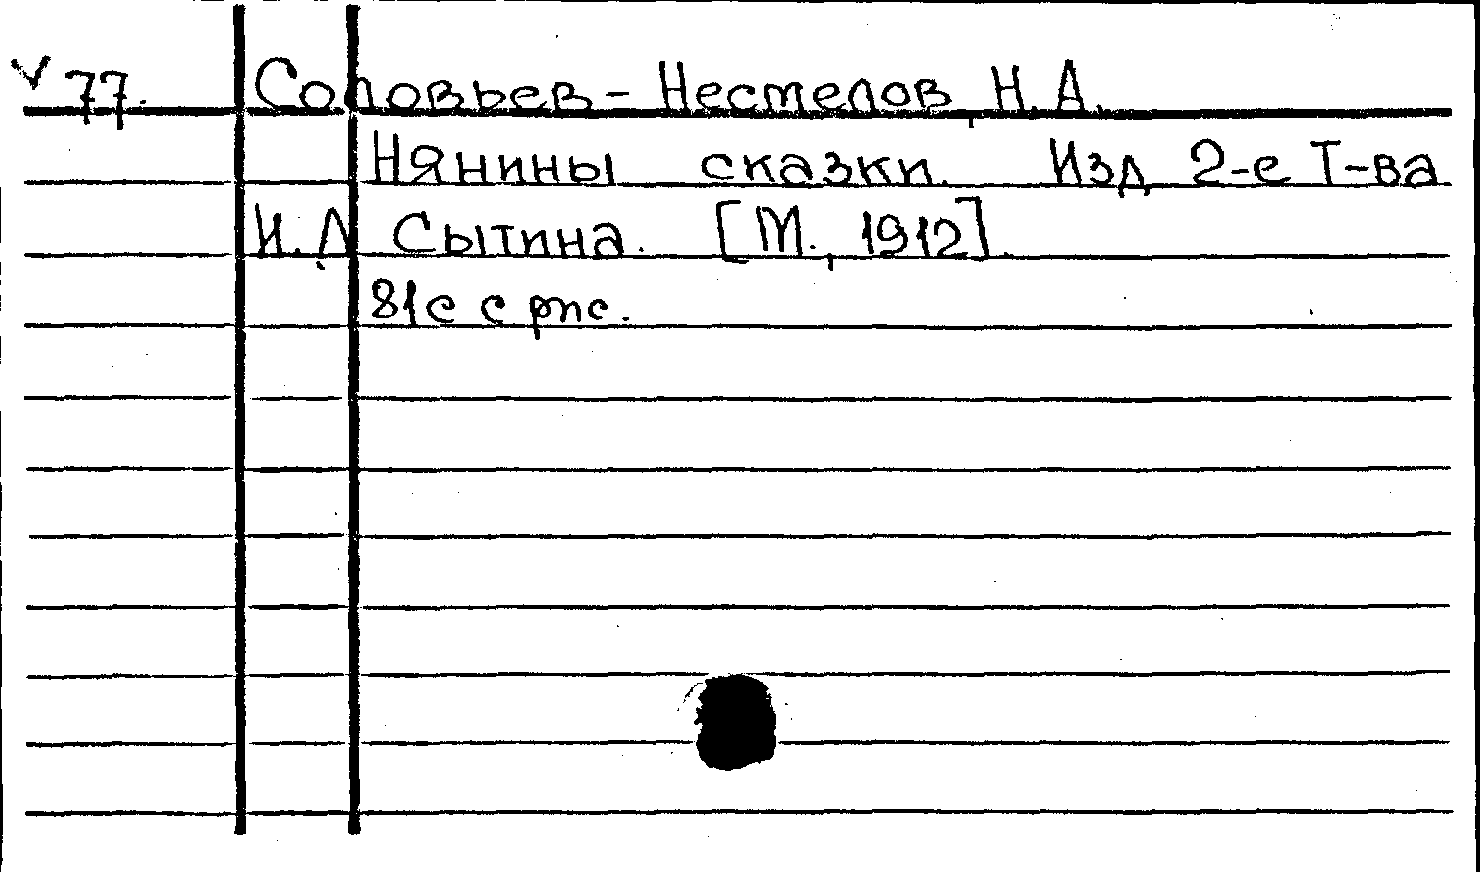 √ 77. Соловьев-Нестелов, Н.А.
Нянины сказки. Изд 2-е Т-ва
И.Д Сытина. [М., 1912].
81с с рис.